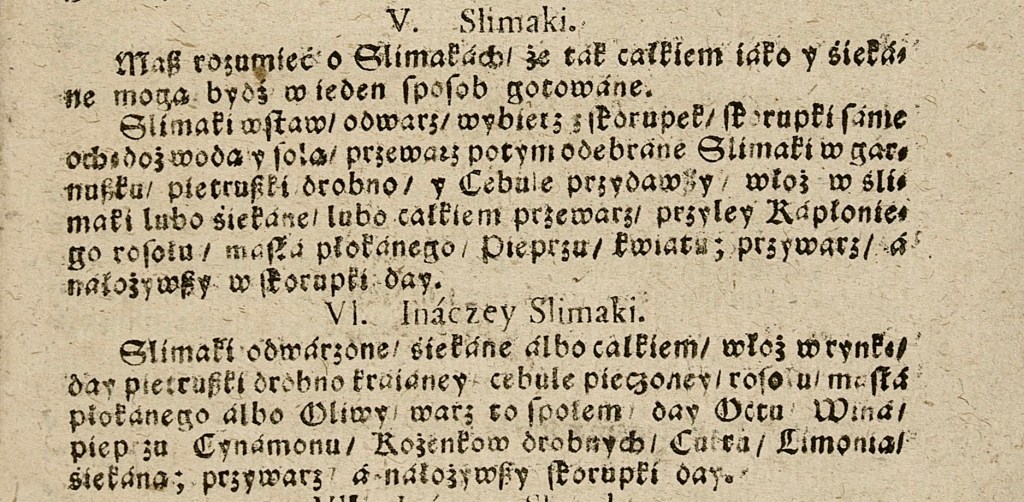 V. Slimaki.
Maſz rozumieć o Slimakách/ że ták cáłkiem iáko y śieká-
ne mogą bydź w ieden sposob gotowáne.
Slimaki wstaw/ odwarz/ wybierz z skorupek/ skorupki sáme
ochędoż wodą y solą/ przewarz potym odebráne Slimaki w gar-
nuſzku/ pietruſzki drobno/ y Cebule przydawſzy/ włoż w śli-
maki lubo śiekáne/ lubo cáłkiem przewarz/ przyley Kápłonie-
go rosołu/ másłá płokánego/ Pieprzu/ kwiatu; przywarz/ á
náłożywſzy w skorupki day.
VI. Ináczey Slimaki.
Slimaki odwárzone/ śiekáne álbo cáłkiem/ włoż w rynkę/
day pietruſzki drobno kraiáney/ cebule pieczoney/ rosołu/ másłá
płokánego álbo Oliwy/ warz to społem/ day Octu/ Winá/
pieprzu/ Cynámonu/ Rożenkow drobnych/ Cukru/ Limonia/
śiekána; przywarz/ á náłożywſzy skorupki day.